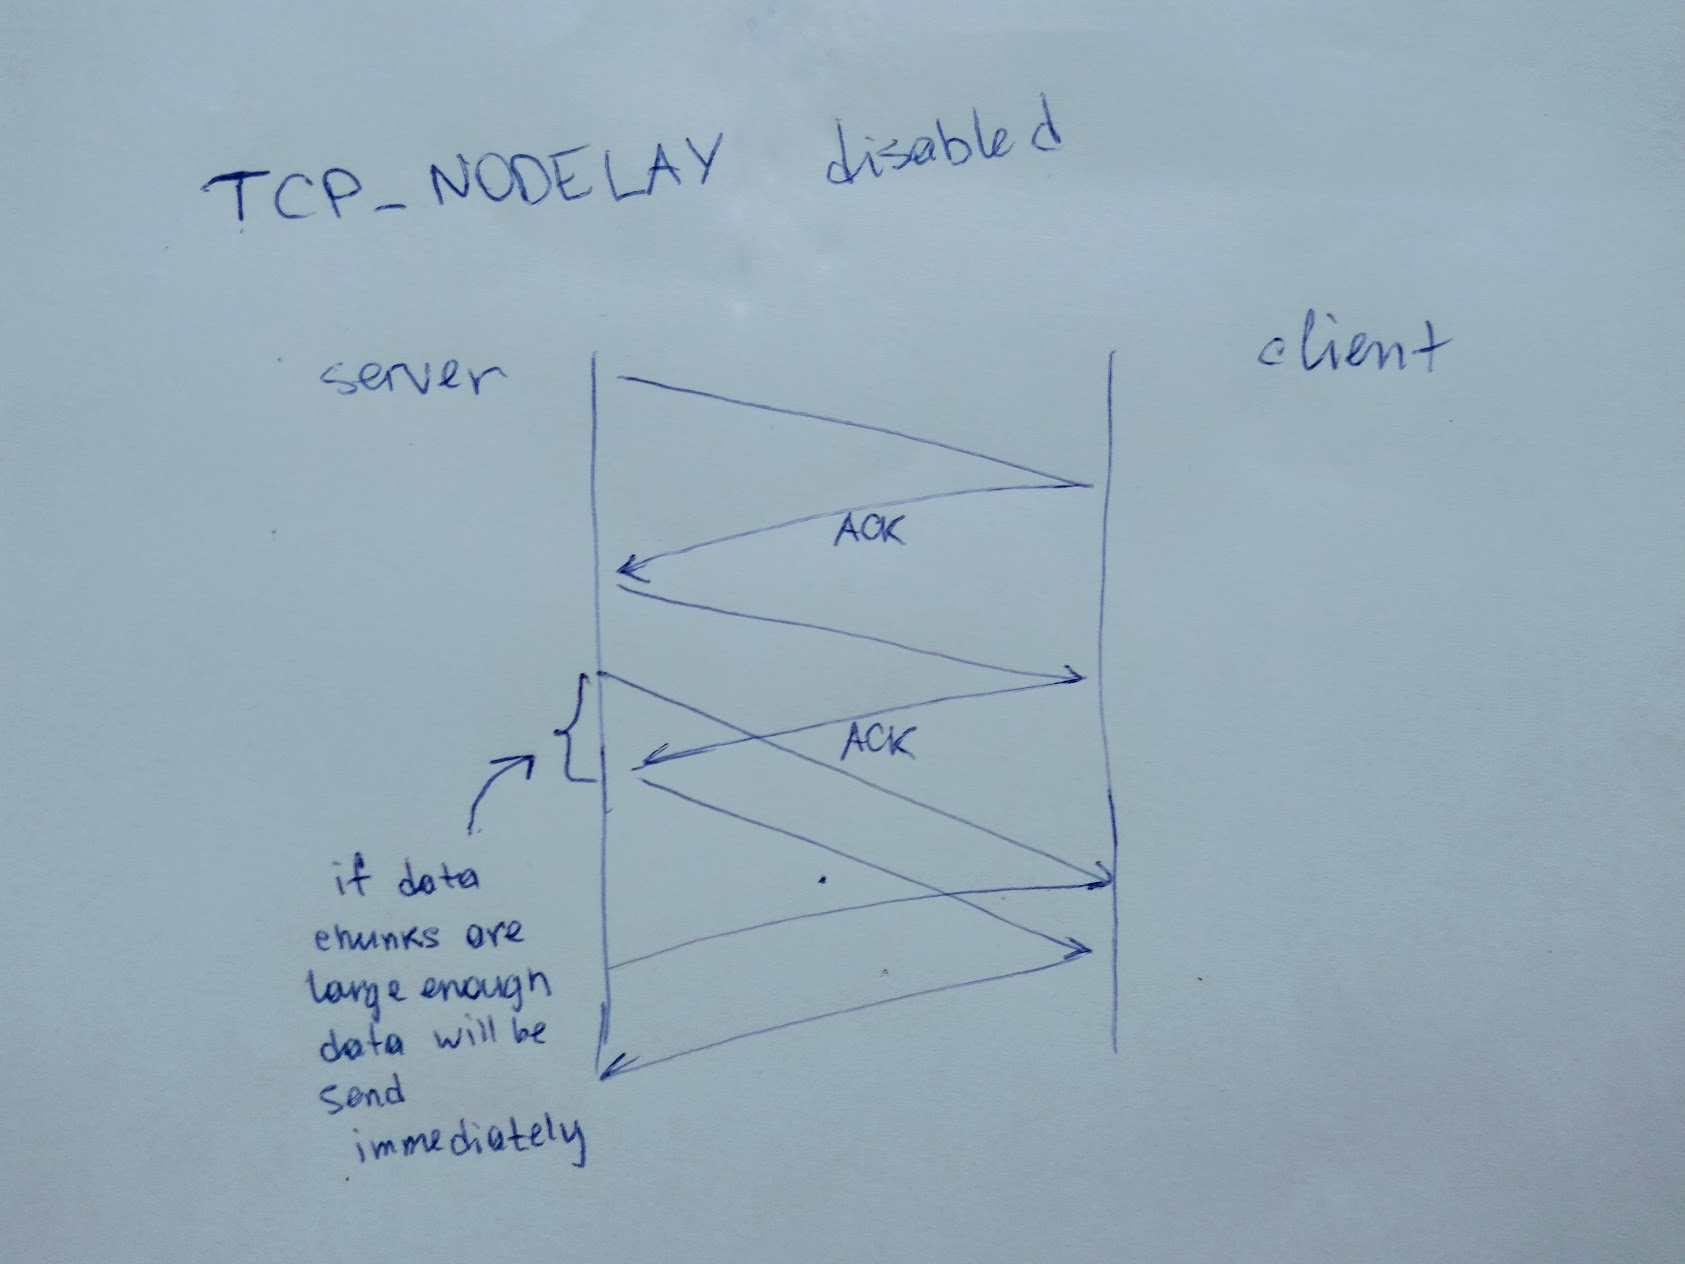 TCP_NODELAY disabled
server
client
ACK
ACK
if data
chunks are
large enough
data will be
send
immediately